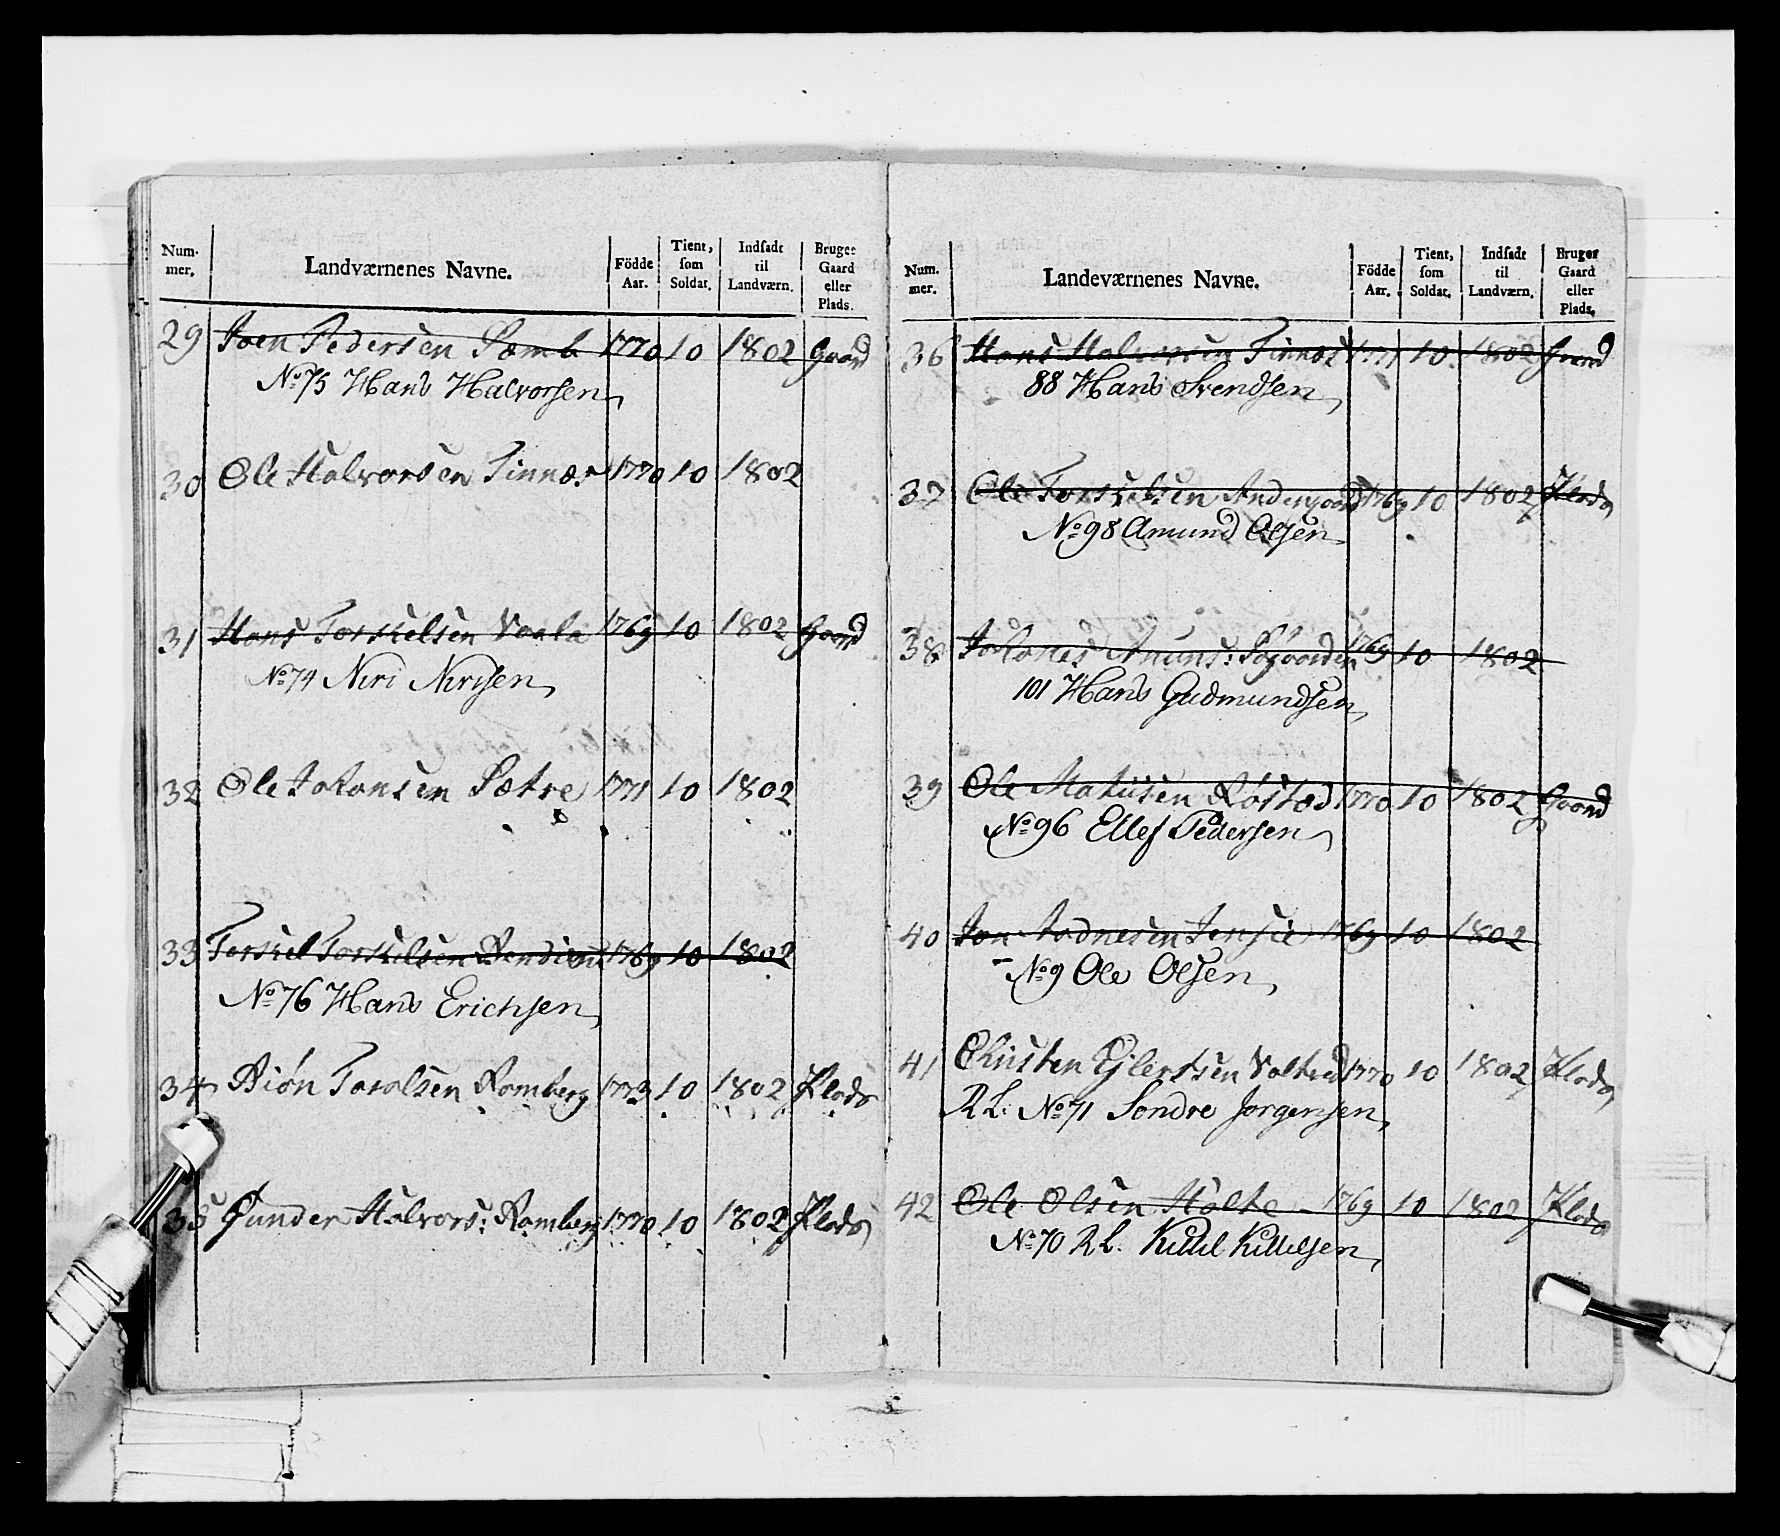 Num-mer. Landværnenes Navne. Födde Aar. Tient, som Soldat. Indsadt til Landværn. Bruger Gaard eller Plads.
29 Joen Pedersen Sæmb 1770 10 1802 Gaard
No 75 Hans Halvorsen
30 Ole Halvorsen Tinnæs 1770 10 1802
31 Hans Torskelsen Vaala 1769 10 1802 Gaard
No 74 Niri Nirisen
32 Ole Johansen Sætre 1771 10 1802
33 Torskel Torskelsen 1769 10 1802
No 76 Hans Erichsen
34 Biön Taralsen Romberg 1773 10 1802 Plads
35 Gunder Halvors: Romberg 1770 10 1802 Plads
Num-mer. Landeværnenes Navne. Födde Aar. Tient, som Soldat. Indsadt til Landværn. Bruger Gaard eller Plads.
36 Hans Halvorsen Tinnæs 1771 10 1802 Gaard
88 Hans Svendsen
37 Ole Torskelsen Andergaard 1769 10 1802 Plads
No 98 Amund Olsen
38 Johanes Amuns: 1769 10 1802
101 Hans Gudmundsen
39 Ole Matiisen Röstad 1770 10 1802 Gaard
No 96 Ellef Pedersen
40 Jon Aadnesen 1769 10 1802
No 9 Ole Olsen
41 Christen Ejlertsen 1770 10 1802 Plads
R L: No 71 Sondre Jorgensen
42 Ole Olsen Holte 1769 10 1802 Plads
No 70 R L. Kittil Kittilsen